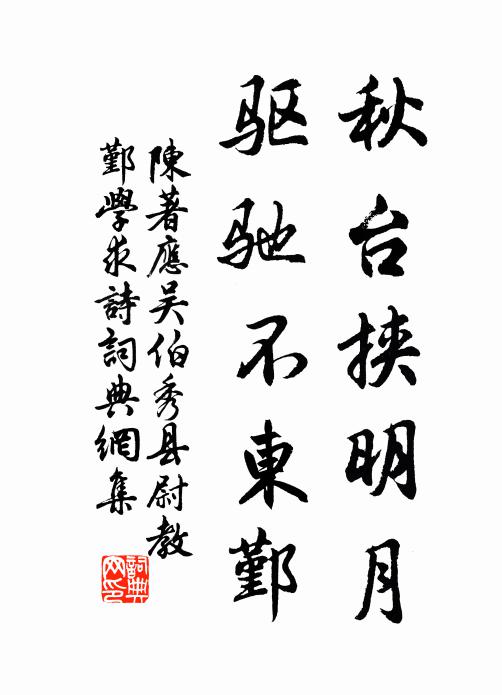 秋台挟明月
驱驰不東鄞
陳著應吴伯秀县尉教
鄞學求詩詞典網集
詞典网印